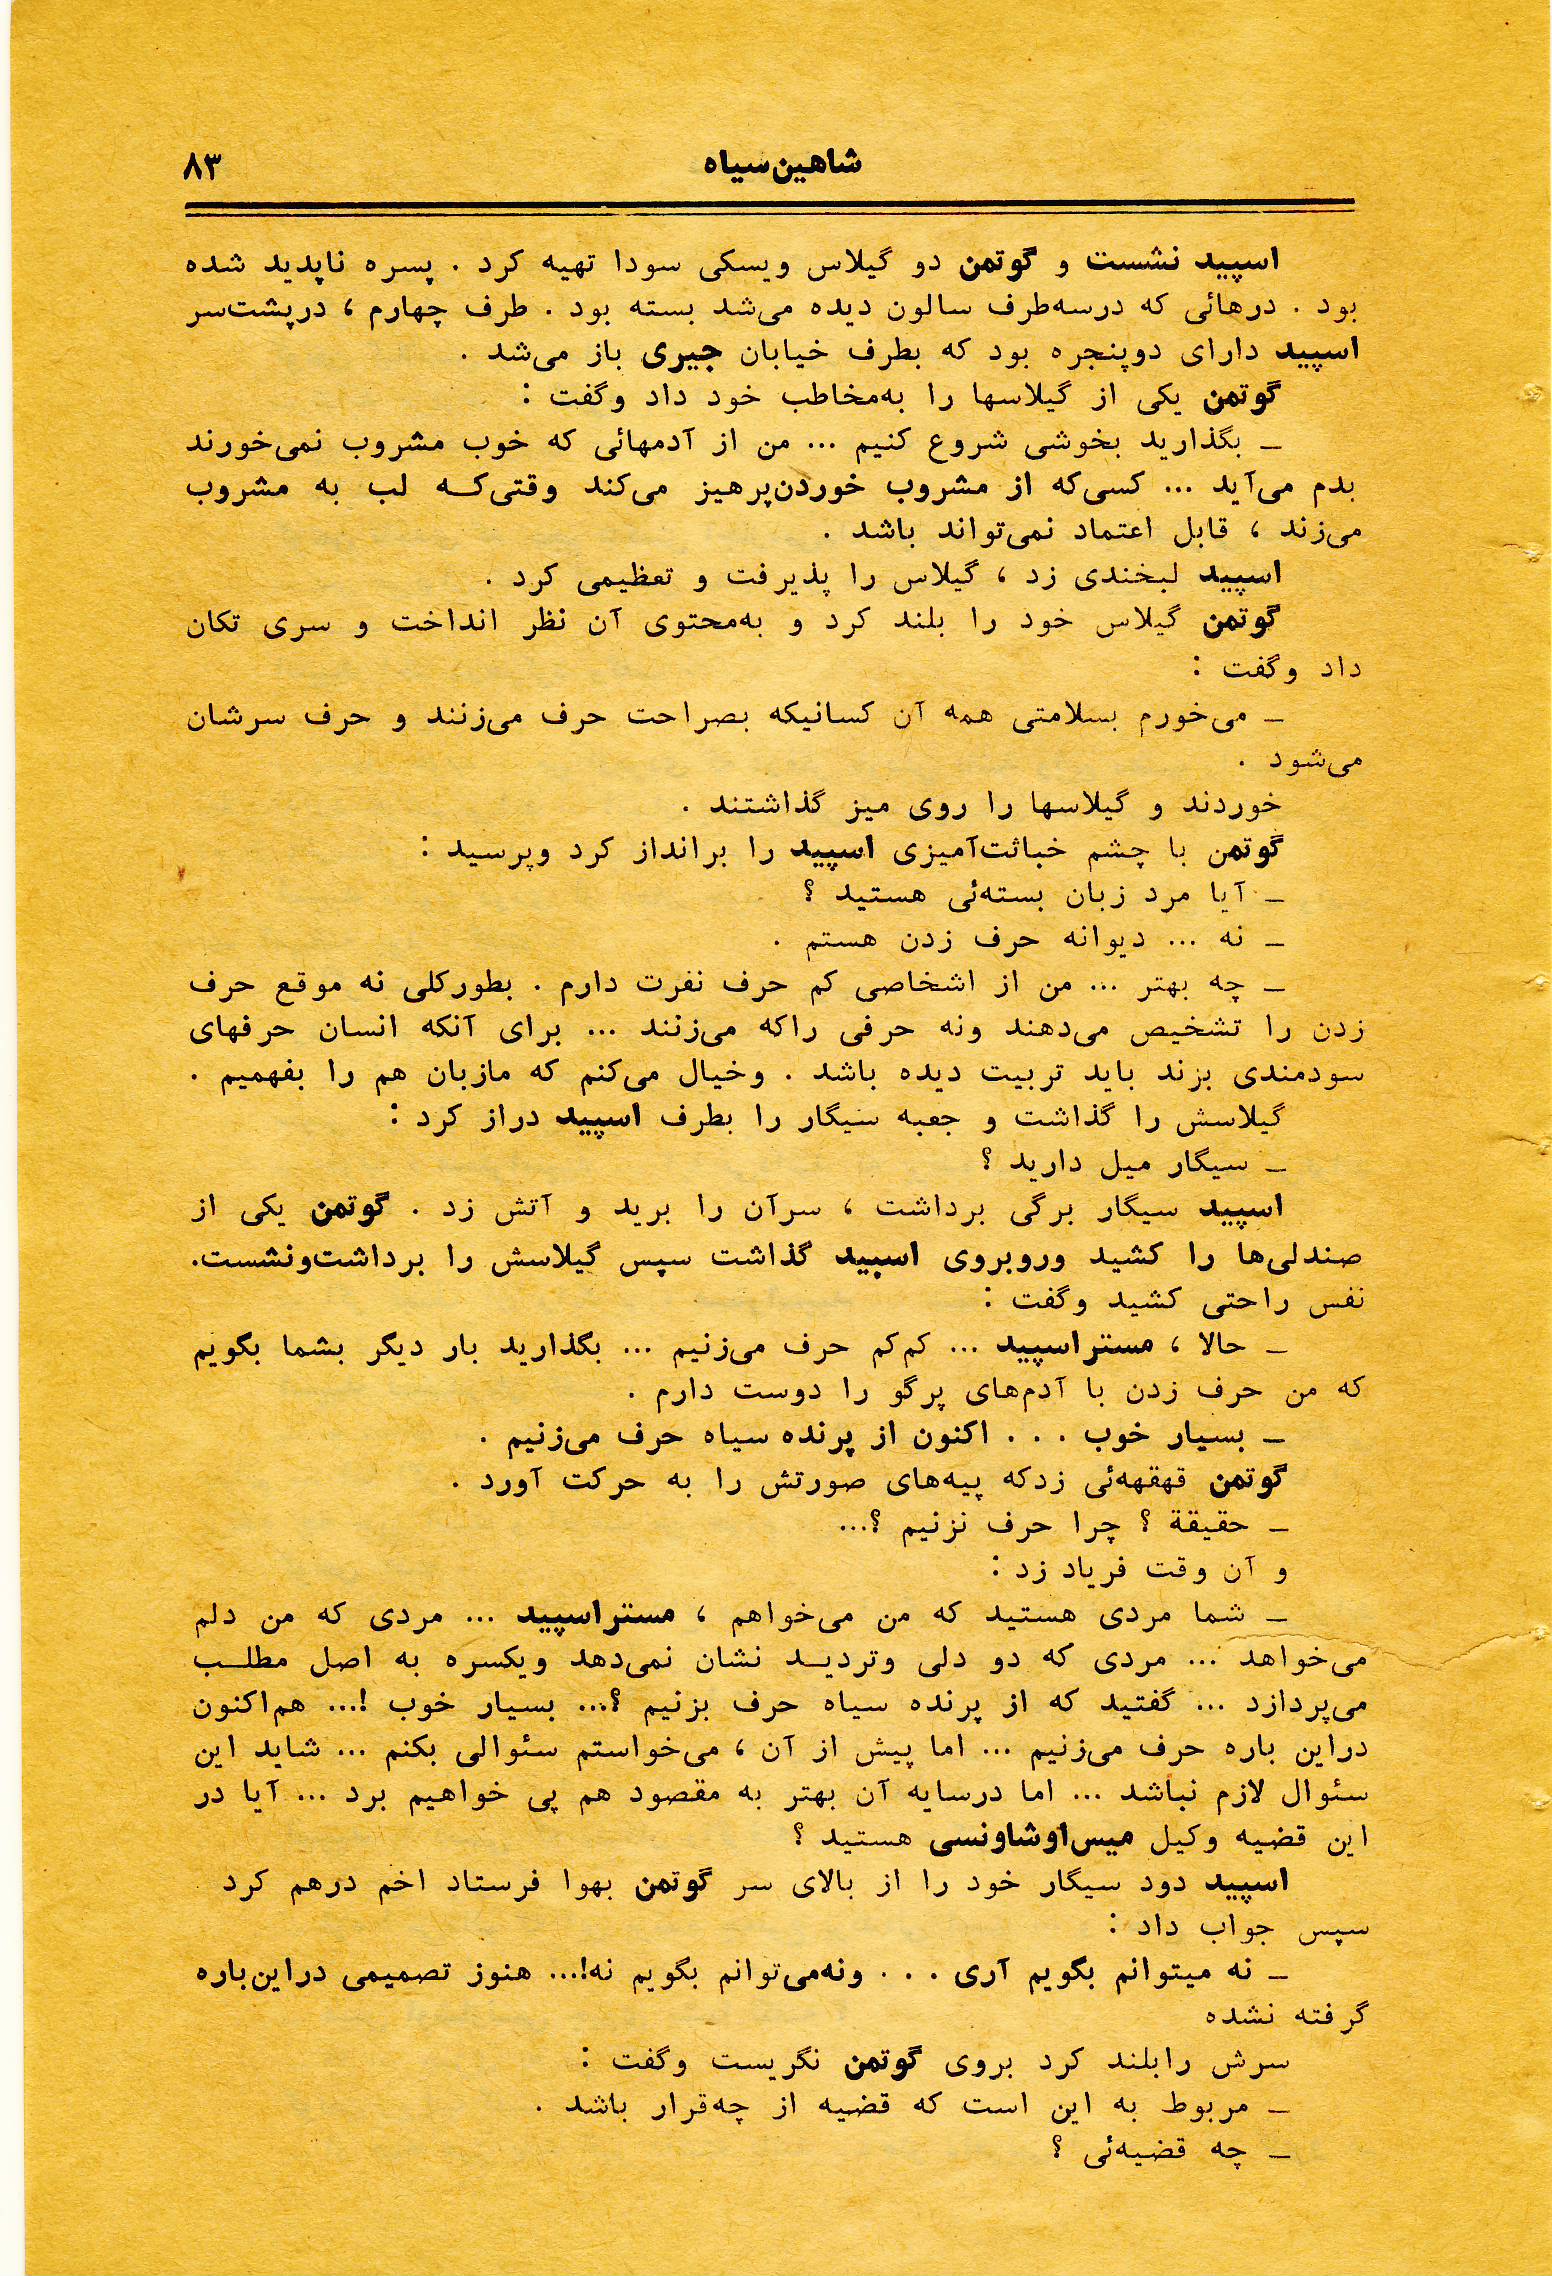 شاهین سیاه
۸۳
اسپید نشست و گوتمن دو گیلاس ویسکی سودا تهیه کرد . پسره ناپدید شده
بود . درهائی که درسه‌طرف سالون دیده می‌شد بسته بود . طرف چهارم ، درپشت‌سر
اسپید دارای دوپنجره بود که بطرف خیابان جیری باز می‌شد .
گوتمن یکی از گیلاسها را به‌مخاطب خود داد وگفت :
ـ بگذارید بخوشی شروع کنیم ... من از آدمهائی که خوب مشروب نمی‌خورند
بدم می‌آید ... کسی‌که از مشروب خوردن‌پرهیز می‌کند وقتی‌که لب به مشروب
می‌زند ، قابل اعتماد نمی‌تواند باشد .
اسپید لبخندی زد ، گیلاس را پذیرفت و تعظیمی کرد .
گوتمن گیلاس خود را بلند کرد و به‌محتوی آن نظر انداخت و سری تکان
داد وگفت :
ـ می‌خورم بسلامتی همه آن کسانیکه بصراحت حرف می‌زنند و حرف سرشان
می‌شود .
خوردند و گیلاسها را روی میز گذاشتند .
گوتمن با چشم خباثت‌آمیزی اسپید را برانداز کرد وپرسید :
ـ آیا مرد زبان بسته‌ئی هستید ؟
ـ نه ... دیوانه حرف زدن هستم .
ـ چه بهتر ... من از اشخاصی کم حرف نفرت دارم . بطورکلی نه موقع حرف
زدن را تشخیص می‌دهند ونه حرفی راکه می‌زنند ... برای آنکه انسان حرفهای
سودمندی بزند باید تربیت دیده باشد . وخیال می‌کنم که مازبان هم را بفهمیم .
گیلاسش را گذاشت و جعبه سیگار را بطرف اسپید دراز کرد :
ـ سیگار میل دارید ؟
اسپید سیگار برگی برداشت ، سرآن را برید و آتش زد . گوتمن یکی از
صندلی‌ها را کشید وروبروی اسپید گذاشت سپس گیلاسش را برداشت‌ونشست.
نفس راحتی کشید وگفت :
ـ حالا ، مستراسپید ... کم‌کم حرف می‌زنیم ... بگذارید بار دیگر بشما بگویم
که من حرف زدن با آدم‌های پرگو را دوست دارم .
ـ بسیار خوب . . . اکنون از پرنده سیاه حرف می‌زنیم .
گوتمن قهقهه‌ئی زدکه پیه‌های صورتش را به حرکت آورد .
ـ حقیقة ؟ چرا حرف نزنیم ؟...
و آن وقت فریاد زد :
ـ شما مردی هستید که من می‌خواهم ، مستراسپید ... مردی که من دلم
می‌خواهد ... مردی که دو دلی وتردید نشان نمی‌دهد ویکسره به اصل مطلب
می‌پردازد ... گفتید که از پرنده سیاه حرف بزنیم ؟... بسیار خوب !... هم‌اکنون
دراین باره حرف می‌زنیم ... اما پیش از آن ، می‌خواستم سئوالی بکنم ... شاید این
سئوال لازم نباشد ... اما درسایه آن بهتر به مقصود هم پی خواهیم برد ... آیا در
این قضیه وکیل میس‌اوشاونسی هستید ؟
اسپید دود سیگار خود را از بالای سر گوتمن بهوا فرستاد اخم درهم کرد
سپس جواب داد :
ـ نه میتوانم بگویم آری . . . ونه‌می‌توانم بگویم نه!... هنوز تصمیمی دراین‌باره
گرفته نشده
سرش رابلند کرد بروی گوتمن نگریست وگفت :
ـ مربوط به این است که قضیه از چه‌قرار باشد .
ـ چه قضیه‌ئی ؟